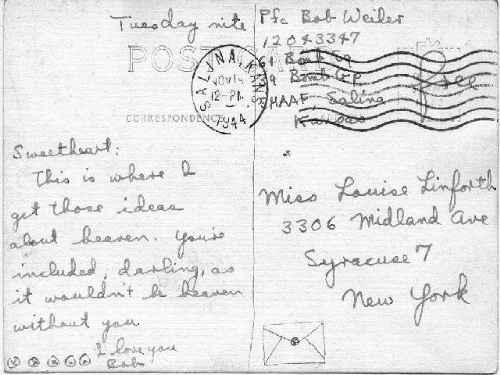 Tuesday nite
POST
CORRESPONDENCE
Sweetheart:
This is where I
get those ideas
about heaven. You're
included, darling, as
it wouldn't be heaven
without you
I love you
Bob
Pfc Bob Weiler
12043347
61 Bomb Sq
39 Bomb Gp
HAAF, Salina
Kansas
Free
SALINA, KANS
NOV 15
12-PM
1944
Miss Louise Linforth
3306 Midland Ave
Syracuse 7
New York